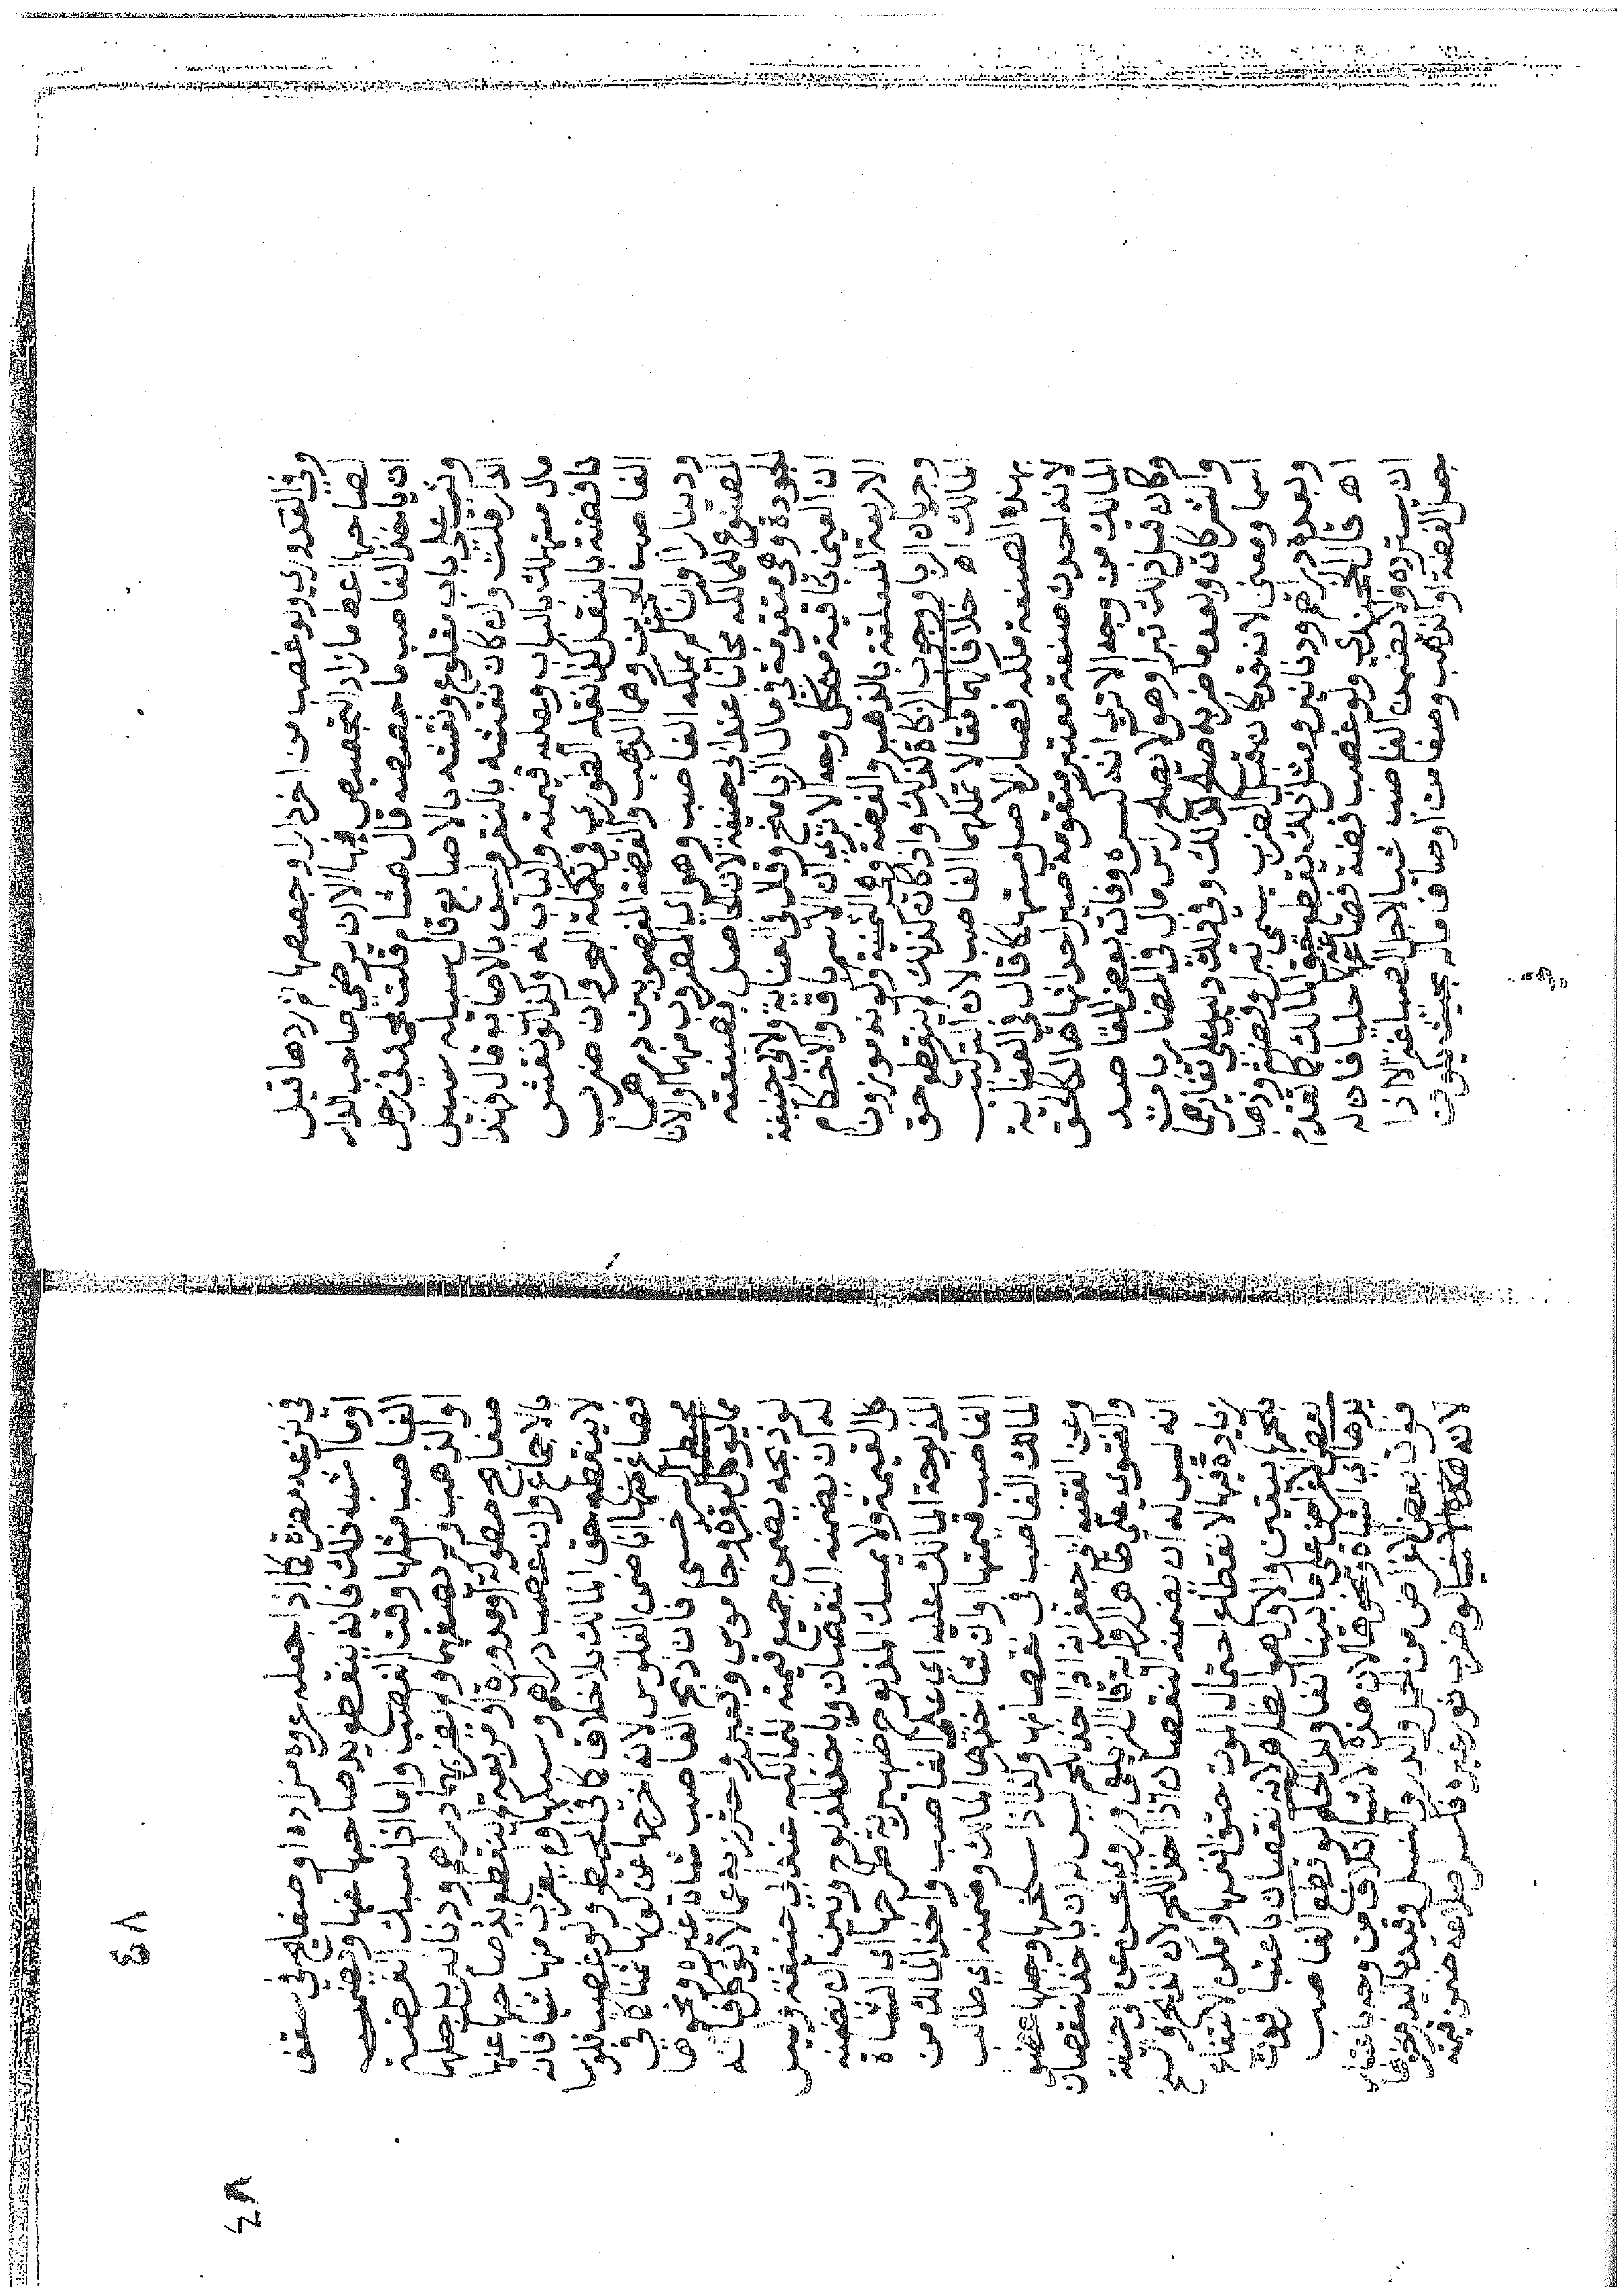 وفي القدوري ولو غصب من اخر دارا وجصصها ثم ردها قيل
لصاحبها اعط ما زاد التجصيص فيها الا ان يرضى صاحب الدار
ان ياخذ الغاصب ما جصصه قال هشام قلت لمحمد في رجل
وثب على باب مقلوع ونقشه بالاصباغ قال سبيله سبيل
الدار قلت وان كان نقشه بالنقر وليس بالاصابع قال فهذا
مال مستهلك بالباب وعليه قيمته والباب له وكذا لو نقش
فافضة بالنقر كذا نقله الطوري في تكملة البحر وان ضرب
الغاصب الحجرين وهما الذهب والفضة المغصوبين درهما
ودينارا او اناء لم يملكه الغاصب وهو اي المضروب منهما والانا
المصنوع للمالكه مجانا عند ابي حنيفة لانه حاصل بصنعته
الجودة وهي متقومة في مال الربا منح وقال في العناية ولابي حنيفة
ان العين باقية من كل وجه الا ترى ان الاسم باق والاحكام
الاربعة المتعلقة بالذهب والفضة وهي الثمنية وكونه موزونا
وجريان الربا ووجوب الزكاة كذلك واذا كان كذلك لم ينقطع حق
المالك اه خلافا لهما فقالا تملكهما الغاصب لان التركيب
بهذه الصنعة ملكه فصار الاصل مستهلكا قال في العناية
لانه احدث صنعة معتبرة متقومة صير احداثها هالكا حق
المالك من وجه الا ترى انه كسره وفات بعض المقاصد
وكان قبل ذلك تبرا وهو لا يصلح راس مال في المضاربات
والشركات وبعد ما ضربه صلح لذلك وفي ذلك دليل على تغايرهما
اسما ومعنى لانه قد كان قبل الضرب يسمى تبرا وفضة وذهبا
وبعده دراهم ودنانير ومثل ذلك يقطع حق المالك كما تقدم
اه قال الخجندي ولو غصب فضة فصاغها حليا فان له
ان يسترده ولا يضمن الغاصب شيا لاجل الصياغة الا اذا
جعل الفضة او الذهب وصفا من اوصاف ماله بحيث يكون
في نزعه مضرة كما اذا جعله عروة مزاده او صفايح في سقف
او ما اشبه ذلك فانه ينقطع يد صاحبها عنها ويضمن
الغاصب مثلها وقت الغصب واما اذا سبك الفضة
او الذهب ولم يصغهما ولم يضربهما دراهم ودنانير بل جعلها
صفايح مطولة او مدورة او مربعة لم ينقطع يد صاحبها عنها
بالاجماع وان غصب دراهم وسبكها ولم يضرب منها شيا فانه
لا ينقطع حق المالك بلا خلاف كما في المحيط ولو غصب فلوسا
فصاغ منها اناء ضمن الفلوس لانه اخرجها عن كونها ثمنا كما في
محيط السرخسي فان ذبح الغاصب شاة غيره ونحوها
مما يوكل كبقرة وجاموس وبعير واحترز به عما لا يوكل فانه
لو ذبحه يضمن جميع قيمته للمالكه عند ابي حنيفة وليس
له ان يضمنه النقصان وياخذ المذبوح وبين ان يضمنه
كل القيمة ولا يمسك المذبوح ظهيرية طرحها اي الشاة
المذبوحة المالك عليه اي على الغاصب واخذ المالك من
الغاصب قيمتها وان شاء اخذها المالك وضمنه اي طالب
المالك الغاصب في نقصانها وكذا اذا سلخها وجعلها عضو
وعن الفقيه ابي جعفر انه اذا اخذ اللحم ليس له ان ياخذ النقصان
والفتوى على ظاهر الرواية قاله الزيلعي وروى الحسن عن ابي حنيفة
انه ليس له ان يضمنه النقصان اذا اخذ اللحم لان الذبح والسلخ
زيادة فيها لانقطاع احتمال الموت حتف انفها وامكان الانتفاع
بلحمها بيقين والاول هو الظاهر لانه نقصان باعتبار فوت
بعض الاغراض على ما بينا انفا وكذا الحكم لو قطع الغاصب
يدها اي الشاة ونحوها لان هذه الاشيا اتلاف من وجه باعتبار
فوات بعض الاغراض من الحمل والدر والنسل وقيد باليد ونحوها
لانه لو ضرب ثور غيره فكسر اضلاعه ضمن قيمته
٤٨
٤٨